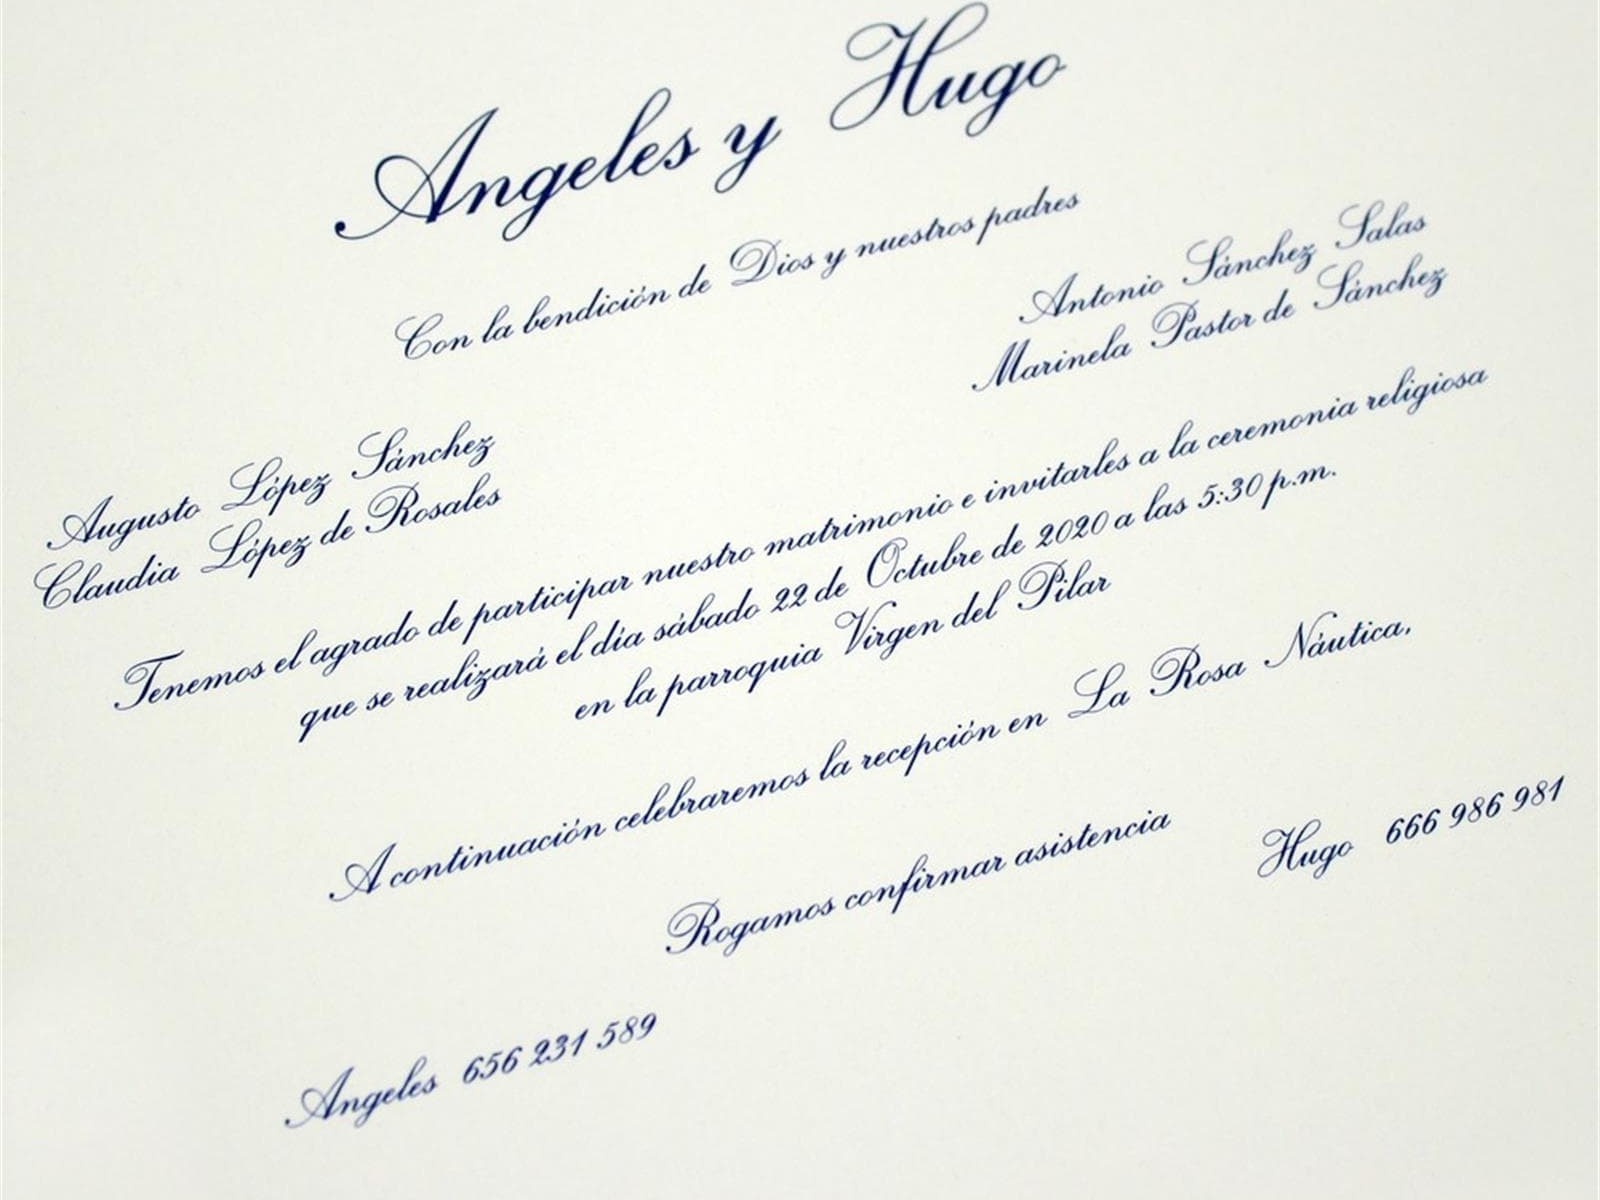 Angeles y Hugo
Con la bendición de Dios y nuestros padres
Augusto López Sánchez
Claudia López de Rosales
Antonio Sánchez Salas
Marinela Pastor de Sánchez
Tenemos el agrado de participar nuestro matrimonio e invitarles a la ceremonia religiosa
que se realizará el día sábado 22 de Octubre de 2020 a las 5:30 p.m.
en la parroquia Virgen del Pilar
A continuación celebraremos la recepción en La Rosa Náutica,
Rogamos confirmar asistencia
Angeles 656 231 589
Hugo 666 986 981